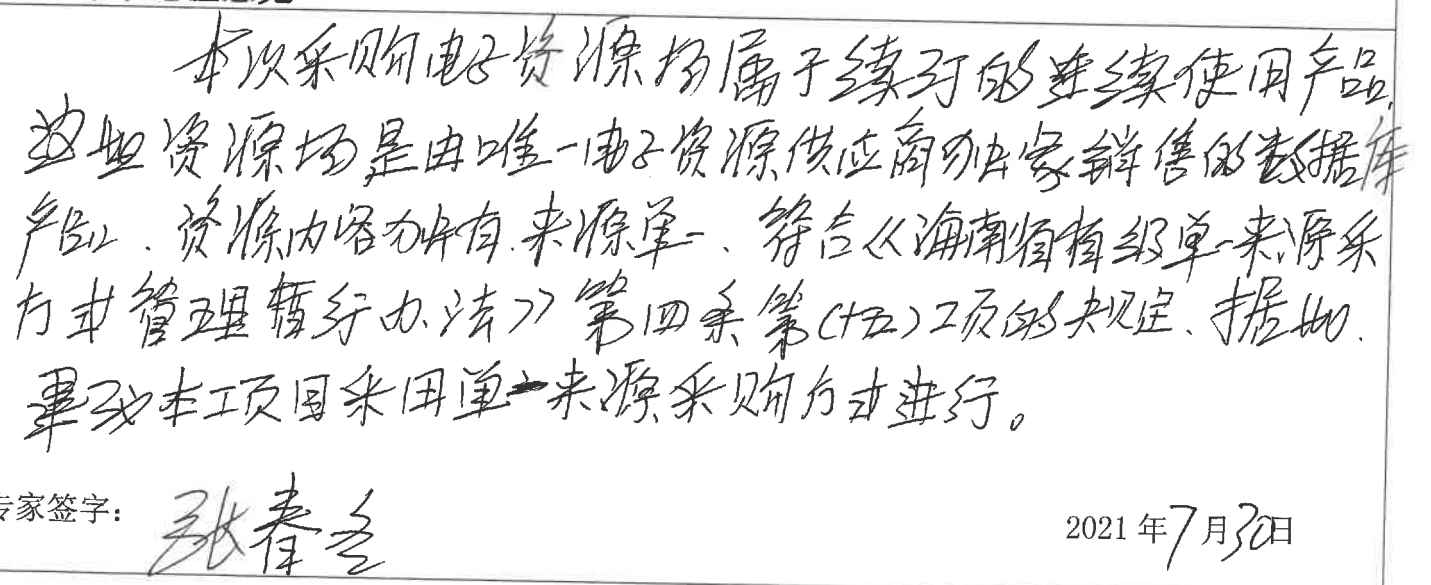 本次采购电子资源均属于续订的连续使用产品,
这些资源均是由唯一电子资源供应商独家销售的数据库
产品、资源内容独有、来源单一、符合《海南省省级单一来源采
方式管理暂行办法》第四条第(十五)项的规定、据此、
本项目采用单一来源采购方式进行。
专家签字: 张春冬 2021年7月30日